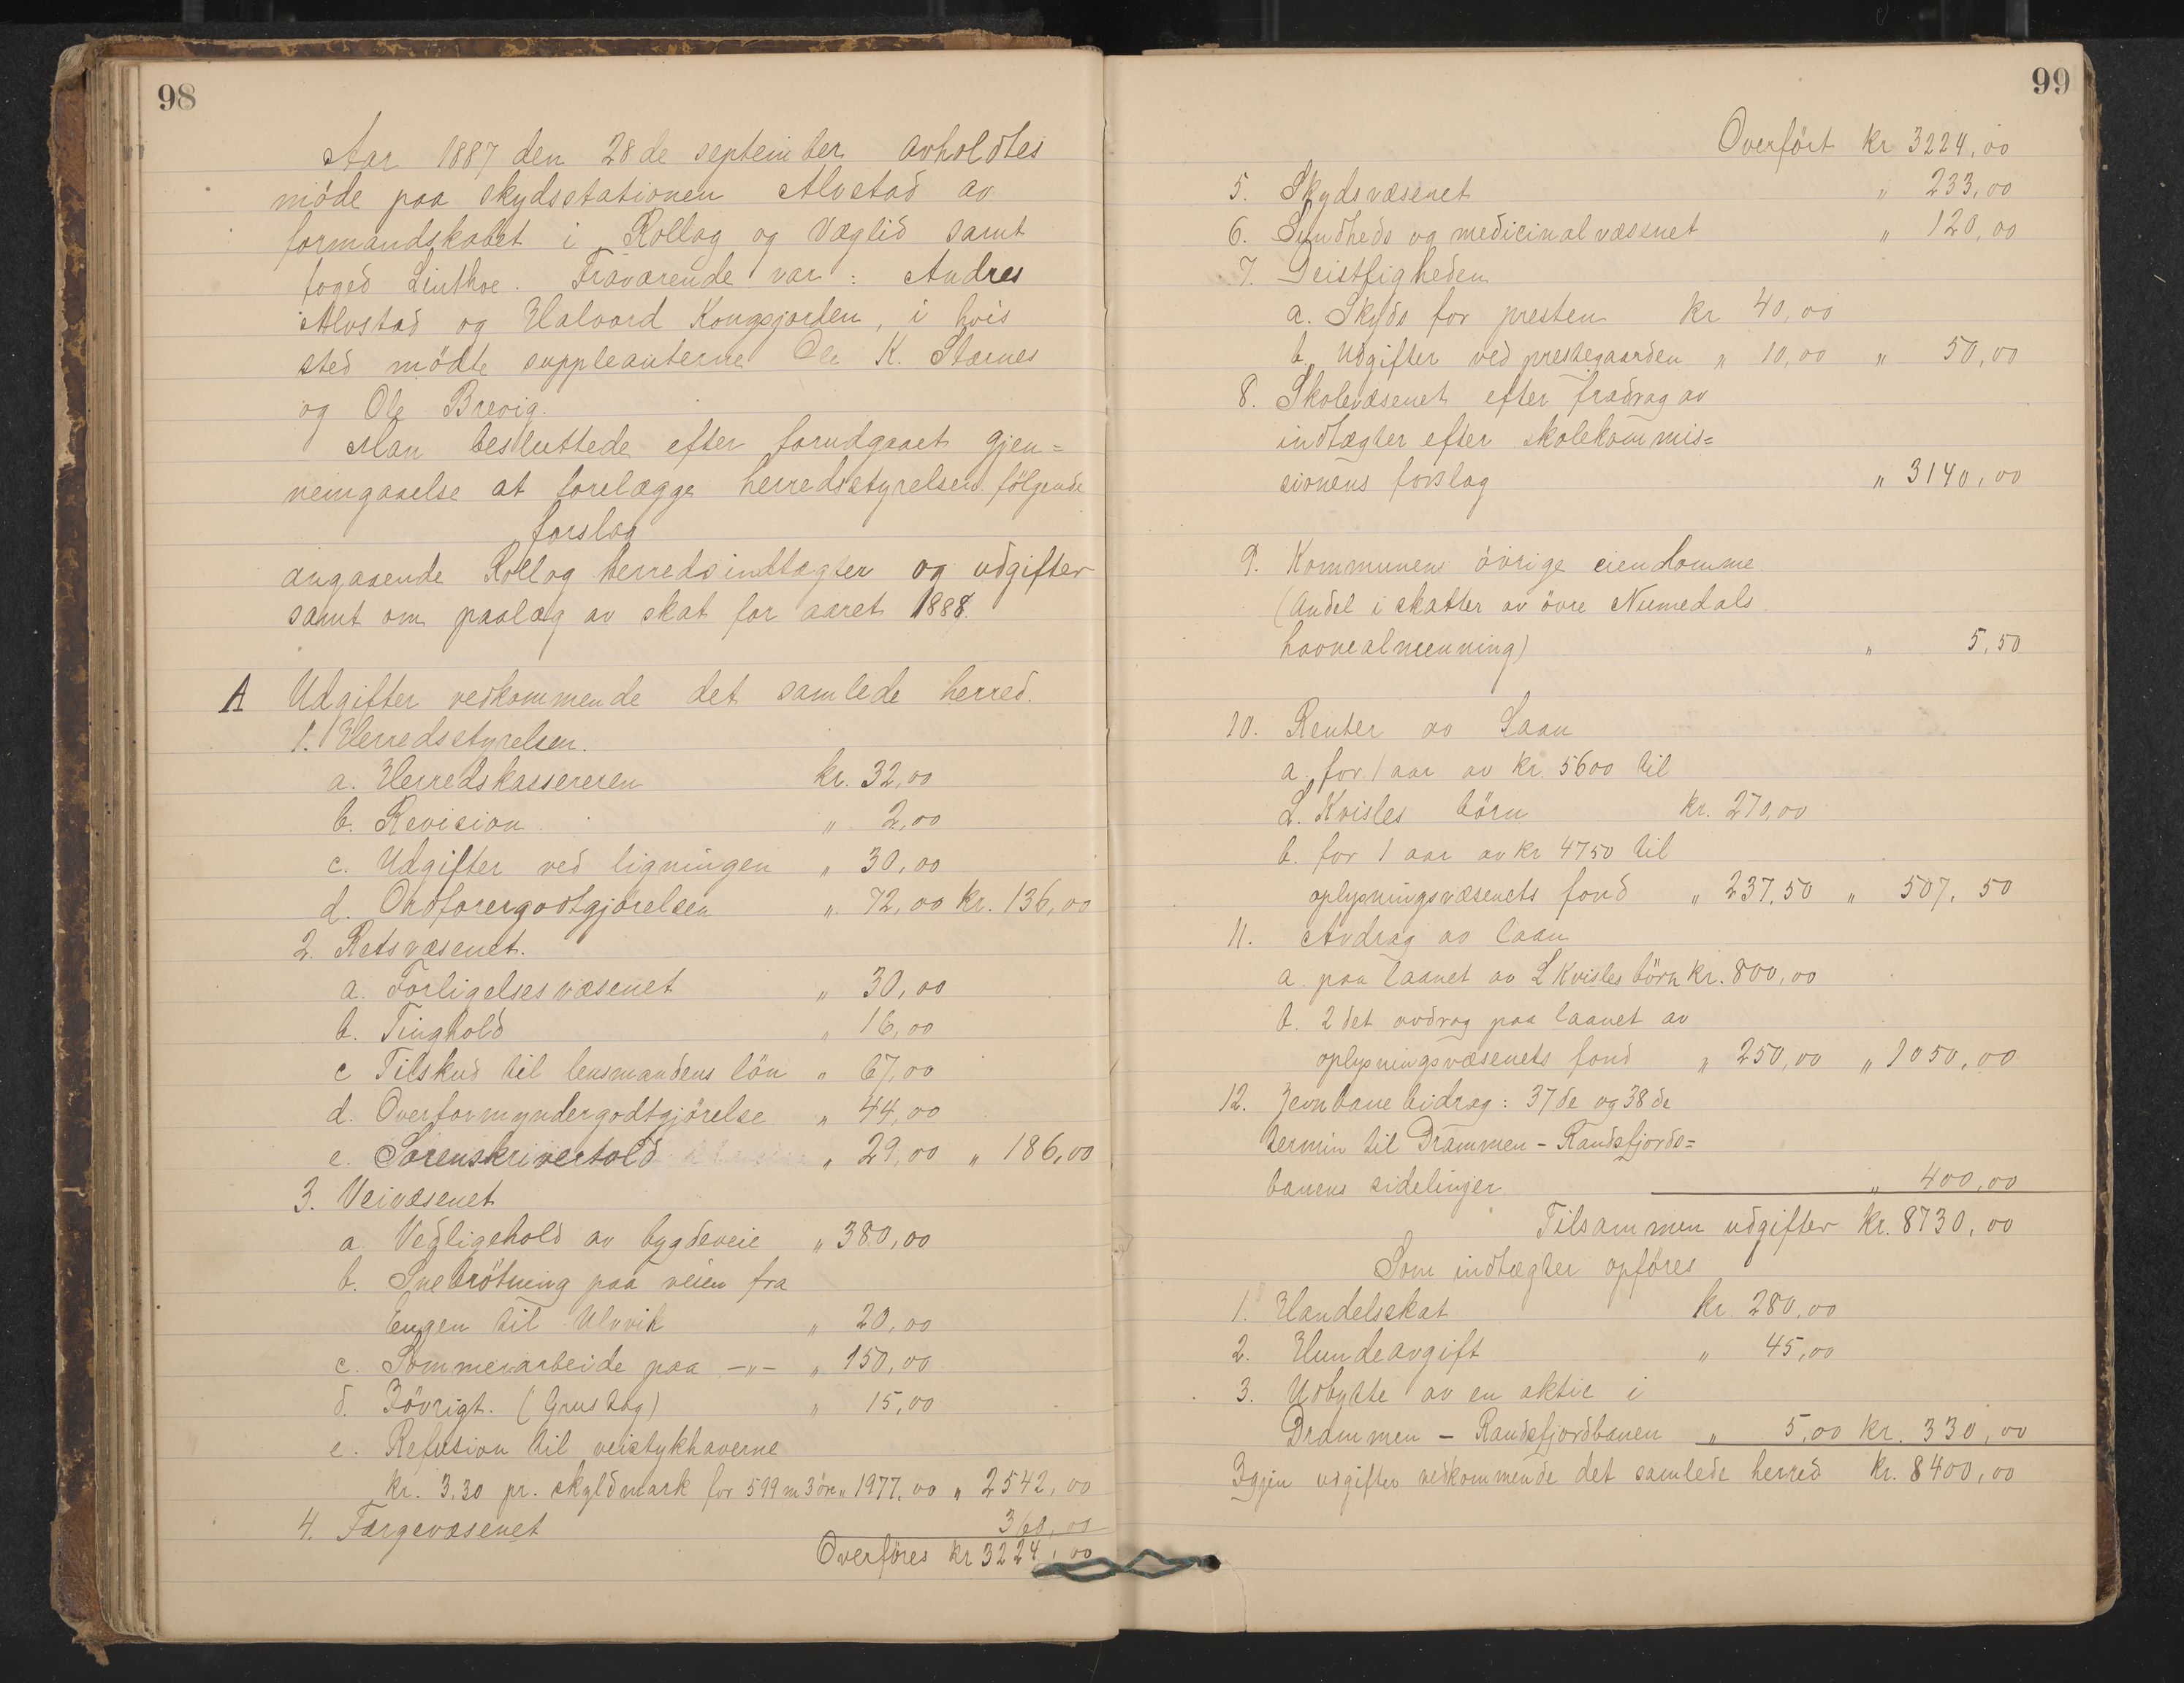 98
Aar 1887 den 28de september avholdtes
möde paa skydsstationen Alvstad av
formandskabet i Rollag og Væglid samt
foged Linthoe. Fraværende var: Andres
Alvstad og Halvard Kongsjorden, i hvis
sted mödte suppleanterne Ole K. Stærnes
og Ole Brevig.
Man besluttede efter forudgaaet gjen=
nemgaaelse at forelægge herredsstyrelsen fölgende
forslag
angaaende Rollag herredsindtægter og udgifter
samt om paalæg av skat for aaret 1888.
A Udgifter vedkommende det samlede herred.
1. Herredsstyrelsen.
a. Herredskassereren kr. 32,00
b. Revision " 2,00
c. Udgifter ved ligningen " 30,00
d. Ordförergodtgjörelsen " 72,00 kr. 136,00
2. Retsvæsenet.
a. Forligelsesvæsenet " 30,00
b. Tinghold " 16,00
c Tilskud til lensmandens lön " 67,00
d. Overformyndergodtgjörelse " 44,00
e. Sorenskrivertold " 29,00 " 186,00
3. Veivæsenet
a. Vedligehold av bygdeveie " 380,00
b. Snebrötning paa veien fra
Engen til Ulvvik " 20,00
c. Sommerarbeide paa -"- " 150,00
d. Iövrigt. (Grustag) " 15,00
e. Refusion til veistykhaverne
kr. 3.30 pr. skyldmark for 599 m 3 öre " 1977,00 " 2542,00
4. Færgevæsenet 360,00
Overföres kr 3224,00
99
Overfört kr 3224,00
5. Skydsvæsenet " 233,00
6. Sundheds og medicinalvæsenet " 120,00
7. Geistligheden
a. Skyds for presten kr 40,00
b. Udgifter ved prestegaarden " 10,00 " 50,00
8. Skolevæsenet efter fradrag av
indtægter efter skolekommis=
sionens forslag " 3140,00
9. Kommunens övrige eiendomme
(Andel i skatter av övre Numedals
havnealmenning) " 5,50
10. Renter av Laan
a. for 1 aar av kr. 5600 til
L. Kvisles börn kr. 270,00
b. for 1 aar av kr 4750 til
oplysningsvæsenets fond " 237,50 " 507,50
11. Avdrag av laan
a. paa laanet av L Kvisles börn kr. 800,00
b. 2det avdrag paa laanet av
oplysningsvæsenets fond " 250,00 " 1050,00
12. Jernbanebidrag: 37de og 38de
termin til Drammen - Randsfjords=
banens sidelinjer " 400,00
Tilsammen udgifter kr. 8730,00
Som indtægter opföres
1. Handelsskat kr. 280,00
2. Hundeavgift " 45,00
3. Udbytte av en aktie i
Drammen - Randsfjordbanen " 5,00 kr. 330,00
Igjen udgifter vedkommende det samlede herred kr. 8400,00